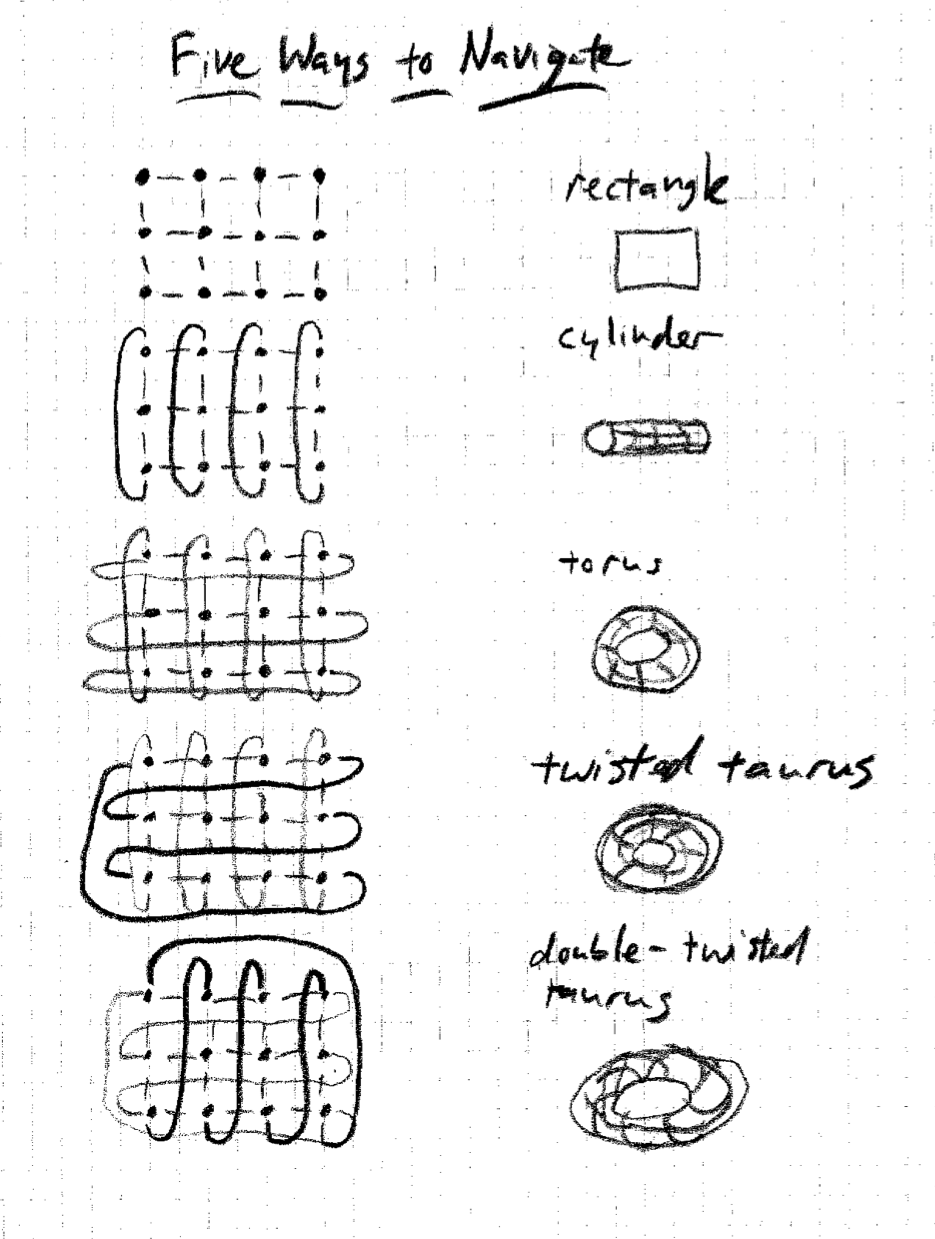 Five Ways to Navigate
rectangle
cylinder
torus
twisted taurus
double-twisted
taurus